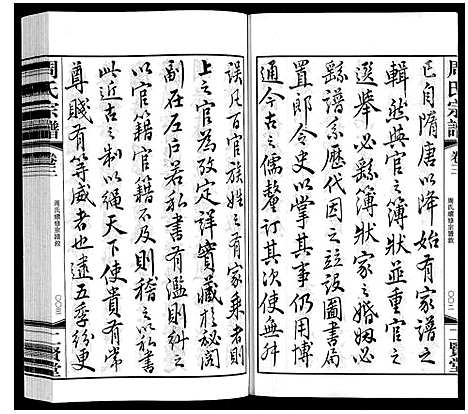 周氏宗譜
卷三
周氏續修宗譜敘
〇〇二
二賢堂
已自隋唐以降始有家譜之
輯然與官之簿狀並重官之
選舉必繇簿狀家之婚姻必
繇譜系歷代因之並設圖書局
置郎令史以掌其事仍用博
通今古之儒釐訂其次使無舛
誤凡百官族姓之有家乘者則
上之官為攷定詳實藏於祕閣
副在左戶若私書有濫則糾之
以官籍官籍不及則稽之以私書
此近古之制以繩天下使貴有常
尊賤有等威者也逮五季紛更
周氏宗譜
卷三
周氏續修宗譜敘
〇〇三
二賢堂